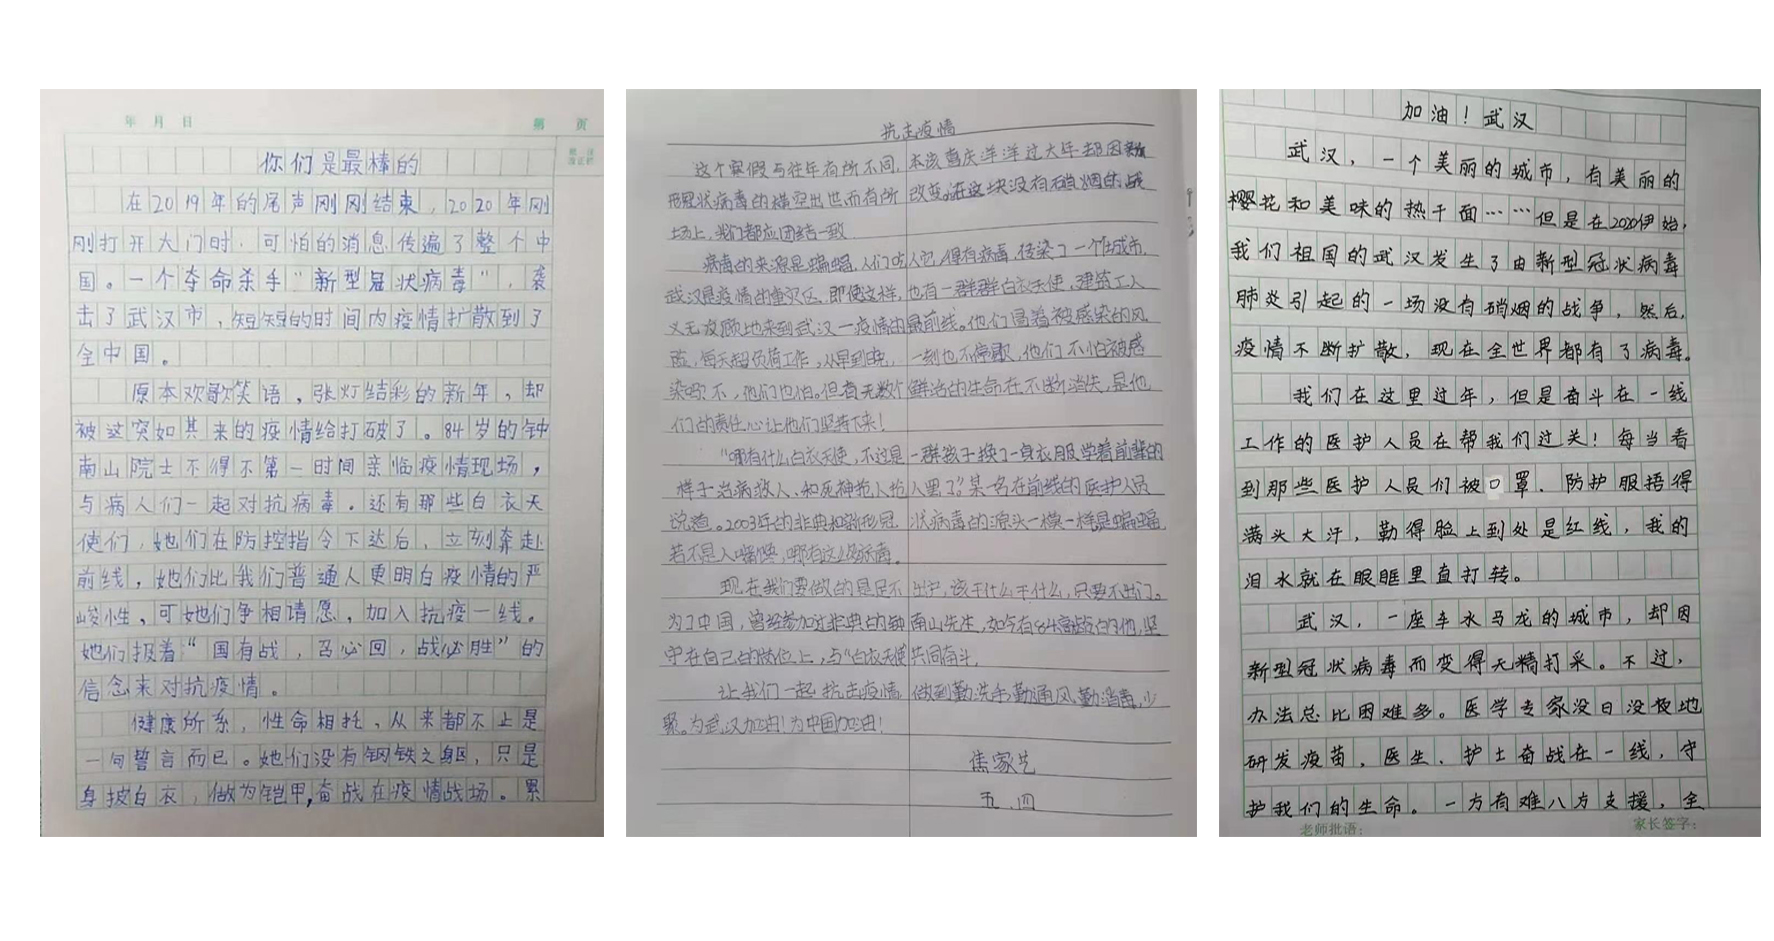 年 月 日
第 页
你们是最棒的
在2019年的尾声刚刚结束，2020年刚
刚打开大门时，可怕的消息传遍了整个中
国。一个夺命杀手“新型冠状病毒”，袭
击了武汉市，短短的时间内疫情扩散到了
全中国。
原本欢歌笑语，张灯结彩的新年，却
被这突如其来的疫情给打破了。84岁的钟
南山院士不得不第一时间亲临疫情现场，
与病人们一起对抗病毒。还有那些白衣天
使们，她们在防控指令下达后，立刻奔赴
前线，她们比我们普通人更明白疫情的严
峻性，可她们争相请愿，加入抗疫一线。
她们报着“国有战，召必回，战必胜”的
信念来对抗疫情。
健康所系，性命相托，从来都不止是
一句誓言而已。她们没有钢铁之身区，只是
身披白衣，做为铠甲，奋战在疫情战场。累
抗击疫情
这个寒假与往年有所不同，本该喜庆洋洋过大年却因新
形冠状病毒的横空出世而有所改变。在这块没有硝烟的战
场上，我们都应团结一致
病毒的来源是蝙蝠，人们吃人它，得有病毒，传染了一个个城市，
武汉是疫情的重灾区。即使这样，也有一群群白衣天使，建筑工人
义无反顾地来到武汉一疫情的最前线。他们冒着被感染的风
险，每天超负荷工作，从早到晚，一刻也不停歇，他们不怕被感
染吗？不，他们也怕。但看无数个鲜活的生命在不断消失，是他
们的责任心让他们坚持下来！
“哪有什么白衣天使，不过是一群孩子换了一身衣服，学着前辈的
样子治病救人、和死神抢人罢了。”某一名在前线的医护人员
说道。2003年的非典和新形冠状病毒的源头一模一样是蝙蝠
若不是人嘴馋，哪有这么多病毒。
现在我们要做的是足不出户，该干什么干什么，只要不出门。
为了中国，曾经参加过非典的钟南山先生，如今有84高龄的他，坚
守在自己的岗位上，与“白衣天使”共同奋斗。
让我们一起抗击疫情，做到勤洗手，勤通风，勤消毒，少
聚。为武汉加油！为中国加油！
五.四
加油！武汉
武汉，一个美丽的城市，有美丽的
樱花和美味的热干面……但是在2020伊始，
我们祖国的武汉发生了由新型冠状病毒
肺炎引起的一场没有硝烟的战争，然后，
疫情不断扩散，现在全世界都有了病毒。
我们在这里过年，但是奋斗在一线
工作的医护人员在帮我们过关！每当看
到那些医护人员们被口罩、防护服捂得
满头大汗，勒得脸上到处是红线，我的
泪水就在眼眶里直打转。
武汉，一座车水马龙的城市，却因
新型冠状病毒而变得无精打采。不过，
办法总比困难多。医学专家没日没夜地
研发疫苗，医生、护士奋战在一线，守
护我们的生命。一方有难八方支援，全
老师批语：
家长签字：